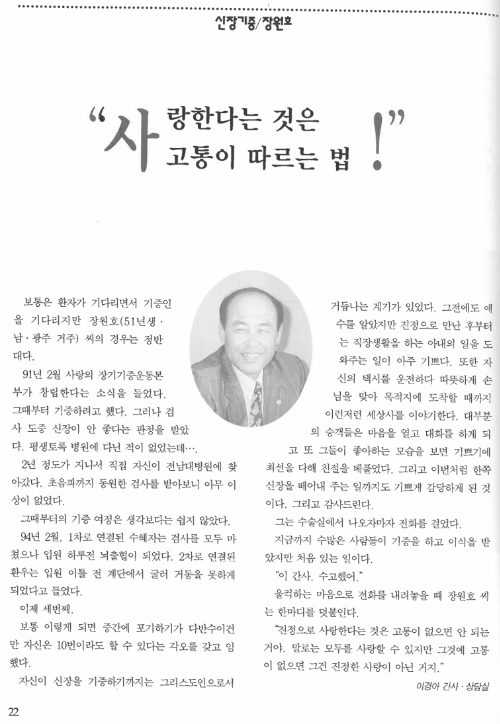 신장기증/장원호
“사랑한다는 것은
고통이 따르는 법!”
보통은 환자가 기다리면서 기증인
을 기다리지만 장원호(51년생·
남·광주 거주) 씨의 경우는 정반
대다.
91년 2월 사랑의 장기기증운동본
부가 창립한다는 소식을 들었다.
그때부터 기증하려고 했다. 그러나 검
사 도중 신장이 안 좋다는 판정을 받았
다. 평생토록 병원에 다닌 적이 없었는데….
2년 정도가 지나서 직접 자신이 전남대병원에 찾
아갔다. 초음파까지 동원한 검사를 받아보니 아무 이
상이 없었다.
그때부터의 기증 여정은 생각보다는 쉽지 않았다.
94년 2월, 1차로 연결된 수혜자는 검사를 모두 마
쳤으나 입원 하루전 뇌출혈이 되었다. 2차로 연결된
환우는 입원 이틀 전 계단에서 굴러 거동을 못하게
되었다고 들었다.
이제 세번째.
보통 이렇게 되면 중간에 포기하기가 다반수이건
만 자신은 10번이라도 할 수 있다는 각오를 갖고 임
했다.
자신이 신장을 기증하기까지는 그리스도인으로서
거듭나는 계기가 있었다. 그전에도 예
수를 알았지만 진정으로 만난 후부터
는 직장생활을 하는 아내의 일을 도
와주는 일이 아주 기쁘다. 또한 자
신의 택시를 운전하다 따뜻하게 손
님을 맞아 목적지에 도착할 때까지
이런저런 세상사를 이야기한다. 대부분
의 승객들은 마음을 열고 대화를 하게 되
고 또 그들이 좋아하는 모습을 보면 기쁘기에
최선을 다해 친절을 베풀었다. 그리고 이번처럼 한쪽
신장을 떼어내 주는 일까지도 기쁘게 감당하게 된 것
이다. 그리고 감사드린다.
그는 수술실에서 나오자마자 전화를 걸었다.
지금까지 수많은 사람들이 기증을 하고 이식을 받
았지만 처음 있는 일이다.
“이 간사. 수고했어.”
울컥하는 마음으로 전화를 내려놓을 때 장원호 씨
는 한마디를 덧붙인다.
“진정으로 사랑한다는 것은 고통이 없으면 안 되는
거야. 말로는 모두를 사랑할 수 있지만 그것에 고통
이 없으면 그건 진정한 사랑이 아닌 거지.”
이경아 간사·상담실
22